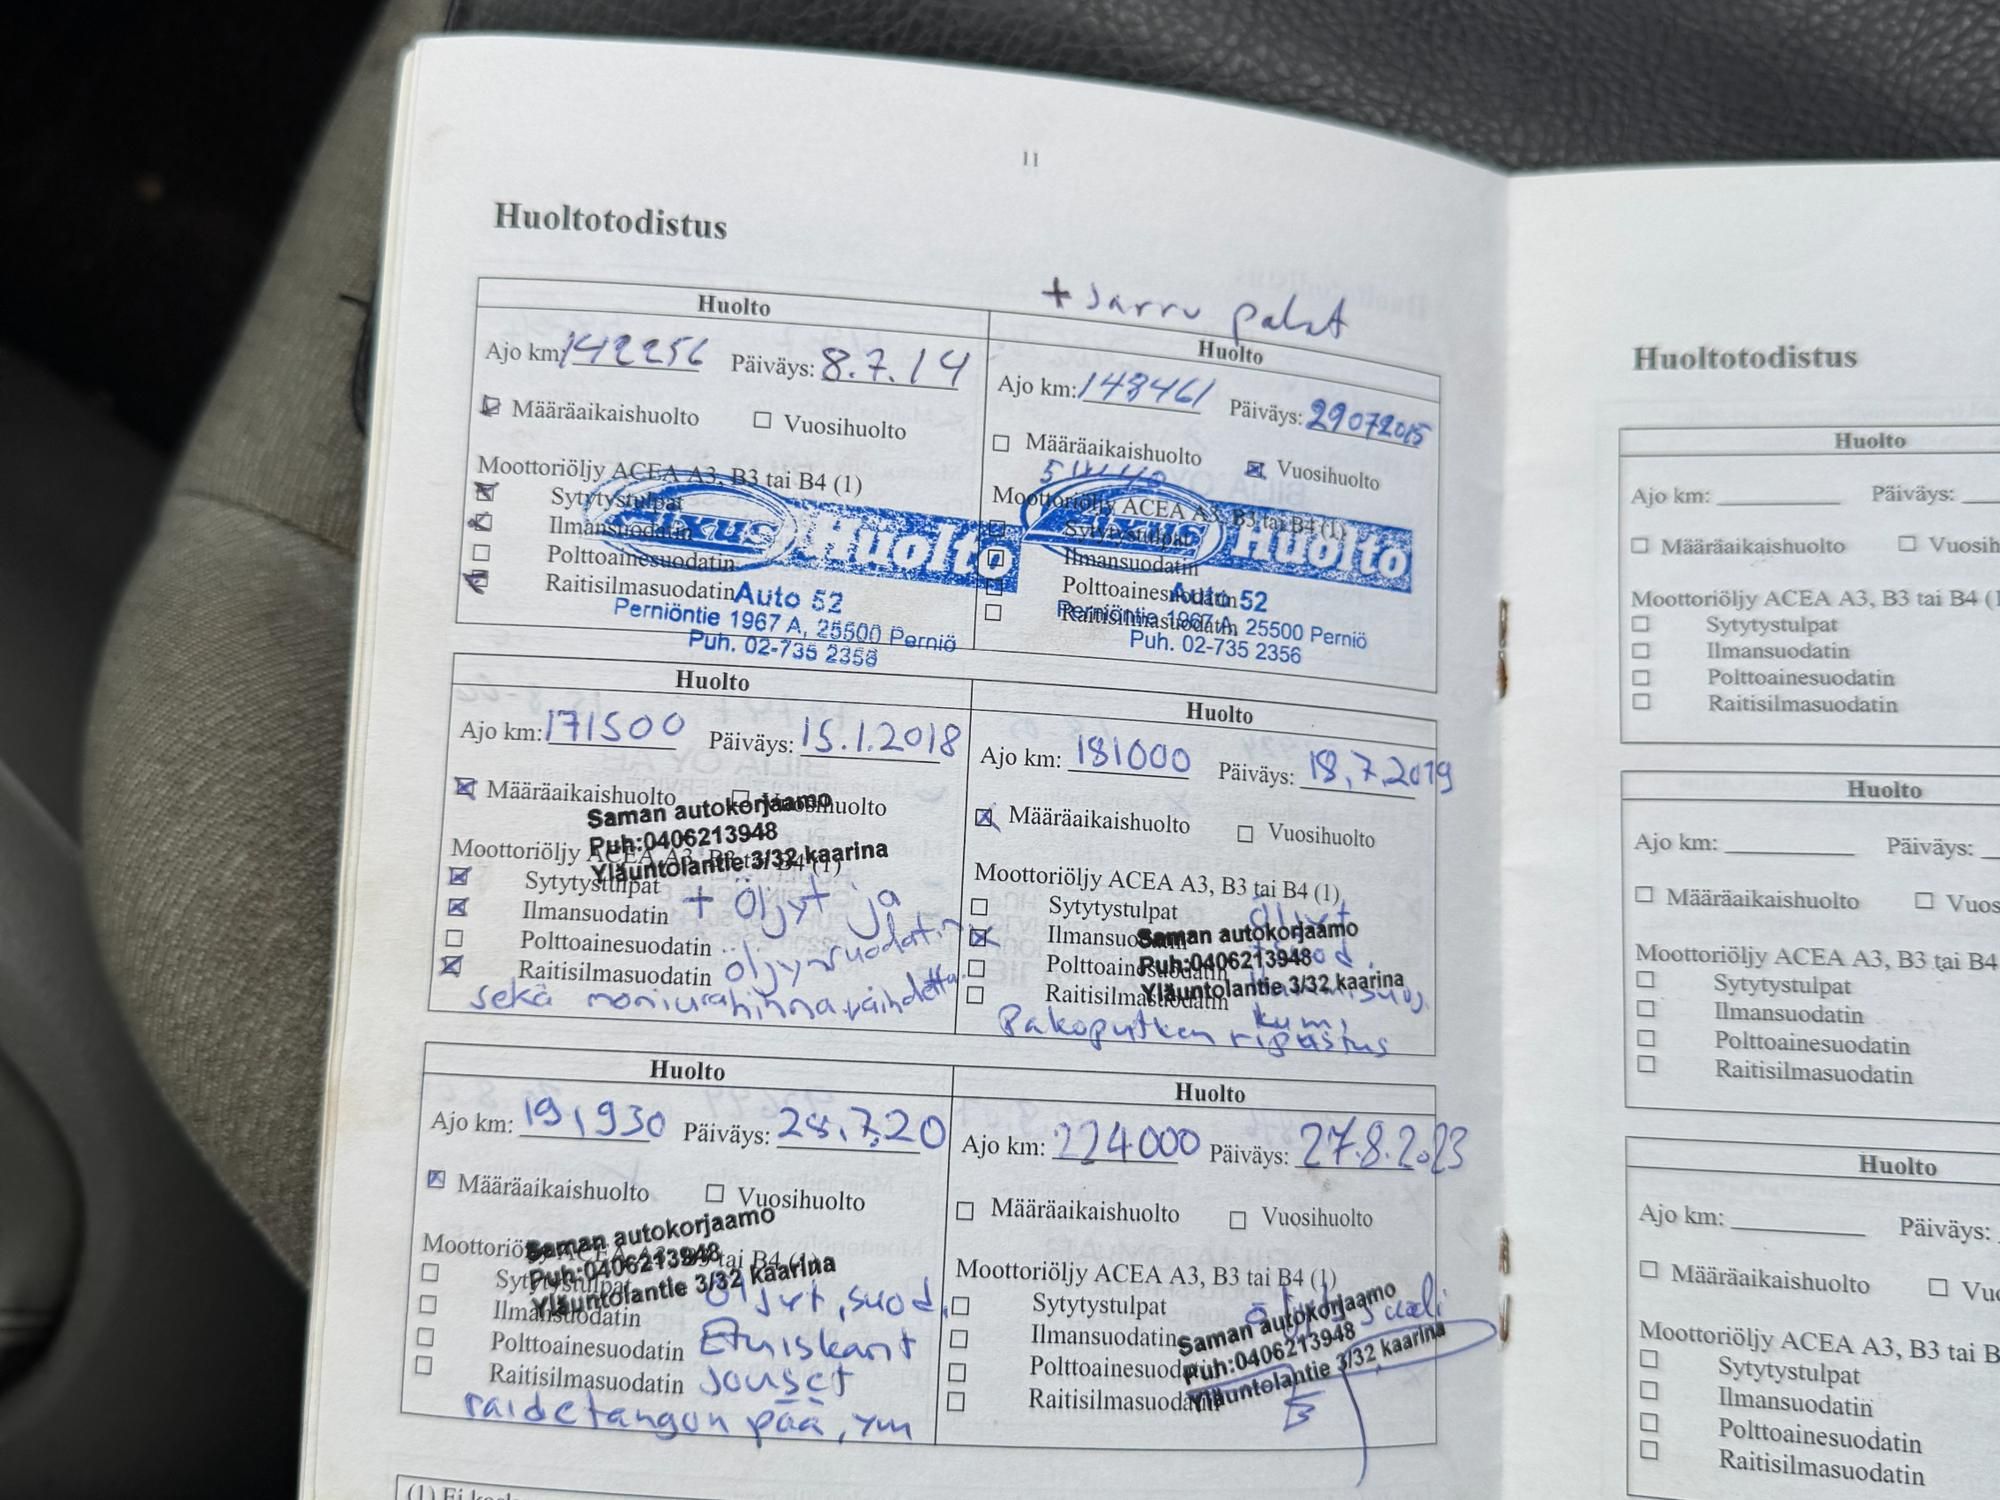 11
Huoltotodistus
+ Jarru palat
Huolto
Ajo km: 142256 Päiväys: 8.7.14
Määräaikaishuolto Vuosihuolto
Moottoriöljy ACEA A3, B3 tai B4 (1)
Sytytystulpat
Ilmansuodatin
Polttoainesuodatin
Raitisilmasuodatin
Fixus Huolto
Auto 52
Perniöntie 1967 A, 25500 Perniö
Puh. 02-735 2356
Huolto
Ajo km: 148461 Päiväys: 29072015
Määräaikaishuolto Vuosihuolto
5W40
Moottoriöljy ACEA A3, B3 tai B4 (1)
Sytytystulpat
Ilmansuodatin
Polttoainesuodatin
Raitisilmasuodatin
Fixus Huolto
Auto 52
Perniöntie 1967 A, 25500 Perniö
Puh. 02-735 2356
Huolto
Ajo km: 171500 Päiväys: 15.1.2018
Määräaikaishuolto Vuosihuolto
Saman autokorjaamo
Puh:0406213948
Yläuntolantie 3/32 kaarina
Moottoriöljy ACEA A3, B3 tai B4 (1)
Sytytystulpat
Ilmansuodatin
Polttoainesuodatin
Raitisilmasuodatin
+ öljyt ja
öljynsuodatin
sekä moniurahihna vaihdettu
Huolto
Ajo km: 181000 Päiväys: 18.7.2019
Määräaikaishuolto Vuosihuolto
Moottoriöljy ACEA A3, B3 tai B4 (1)
Sytytystulpat
Ilmansuodatin
Polttoainesuodatin
Raitisilmasuodatin
öljyt
Saman autokorjaamo
Puh:0406213948
Yläuntolantie 3/32 kaarina
Pakoputken ripustus
kumi
Huolto
Ajo km: 191930 Päiväys: 28.7.20
Määräaikaishuolto Vuosihuolto
Saman autokorjaamo
Puh:0406213948
Yläuntolantie 3/32 kaarina
Moottoriöljy ACEA A3, B3 tai B4 (1)
Sytytystulpat
Ilmansuodatin
Polttoainesuodatin
Raitisilmasuodatin
öljyt, suod.
Etuiskarit
Jouset
raidetangon pää, ym
Huolto
Ajo km: 224000 Päiväys: 27.8.2023
Määräaikaishuolto Vuosihuolto
Moottoriöljy ACEA A3, B3 tai B4 (1)
Sytytystulpat
Ilmansuodatin
Polttoainesuodatin
Raitisilmasuodatin
Saman autokorjaamo
Puh:0406213948
Yläuntolantie 3/32 kaarina
Huoltotodistus
Huolto
Ajo km: Päiväys:
Määräaikaishuolto
Moottoriöljy ACEA A3, B3 tai B4 (1
Sytytystulpat
Ilmansuodatin
Polttoainesuodatin
Raitisilmasuodatin
Huolto
Ajo km: Päiväys:
Määräaikaishuolto
Moottoriöljy ACEA A3, B3 tai B4
Sytytystulpat
Ilmansuodatin
Polttoainesuodatin
Raitisilmasuodatin
Huolto
Ajo km: Päiväys:
Määräaikaishuolto
Moottoriöljy ACEA A3, B3 tai B
Sytytystulpat
Ilmansuodatin
Polttoainesuodatin
Raitisilmasuodatin